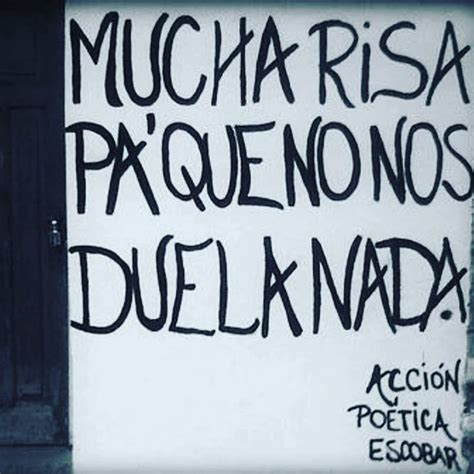 MUCHA RiSA
PA'QUE NO NOS
DUELA NADA.
ACCIÓN
POÉTICA
ESCOBAR